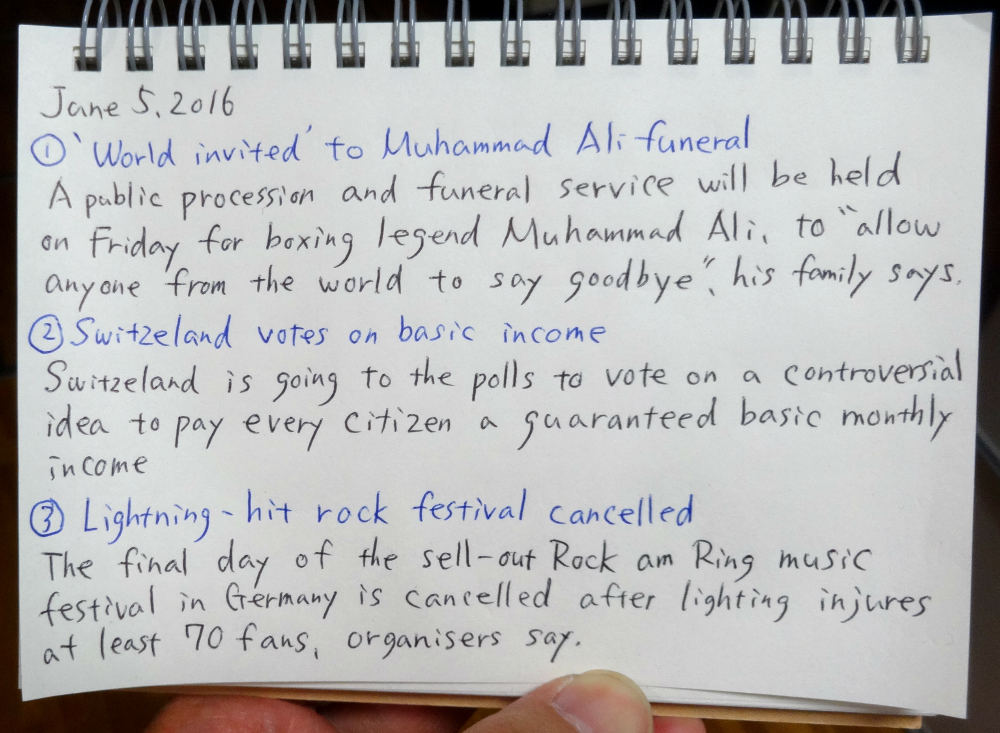 June 5, 2016
① 'World invited' to Muhammad Ali funeral
A public procession and funeral service will be held
on Friday for boxing legend Muhammad Ali, to "allow
anyone from the world to say goodbye", his family says.
② Switzeland votes on basic income
Switzeland is going to the polls to vote on a controversial
idea to pay every citizen a guaranteed basic monthly
income
③ Lightning-hit rock festival cancelled
The final day of the sell-out Rock am Ring music
festival in Germany is cancelled after lighting injures
at least 70 fans, organisers say.